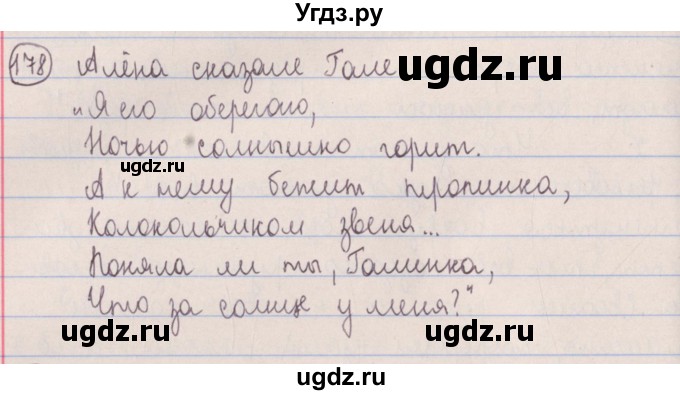 Угдз.ру
178 Алёна сказала Гале
ugdz.ru
„Я его оберегаю,
Ночью солнышко горит.
ugdz.ru
А к нему бежит тропинка,
Колокольчиком звеня...
Поняла ли ты, Галинка,
Что за солнце у меня?“
ugdz.ru ugdz.ru
ugdz.ru